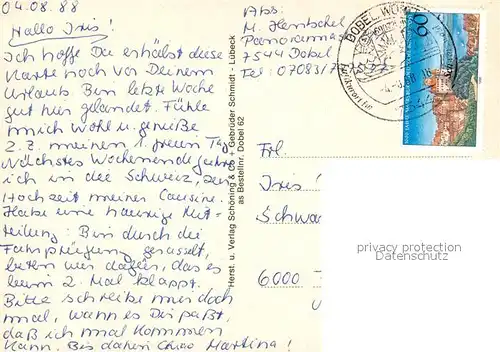 04.08.88
Hallo Iris!
Ich hoffe Du erhälst diese
Karte noch vor Deinem
Urlaub. Bin letzte Woche
gut hier gelandet. Fühle
mich wohl u. genieße
z.Z. meinen 1. freien Tag.
Nächstes Wochenende fahre
ich in die Schweiz, zur
Hochzeit meiner Cousine.
Habe eine traurige Mit-
teilung: Bin durch die
Fahrprüfung gerasselt,
beten wir dafür, das es
beim 2. Mal klappt.
Bitte schreibe mir doch
mal, wann es Dir paßt,
daß ich mal kommen
kann. Bis dahin Ciao Martina!
Herst. u. Verlag Schöning & Co + Gebrüder Schmidt - Lübeck
as Bestellnr. Dobel 62
Abs:
M. Hentschel
Panorama
7544 Dobel
Tel: 07083/
DOBEL, WÜRTT
60
Frl.
Iris
Schwa
6000
privacy protection
www.oldthing.de